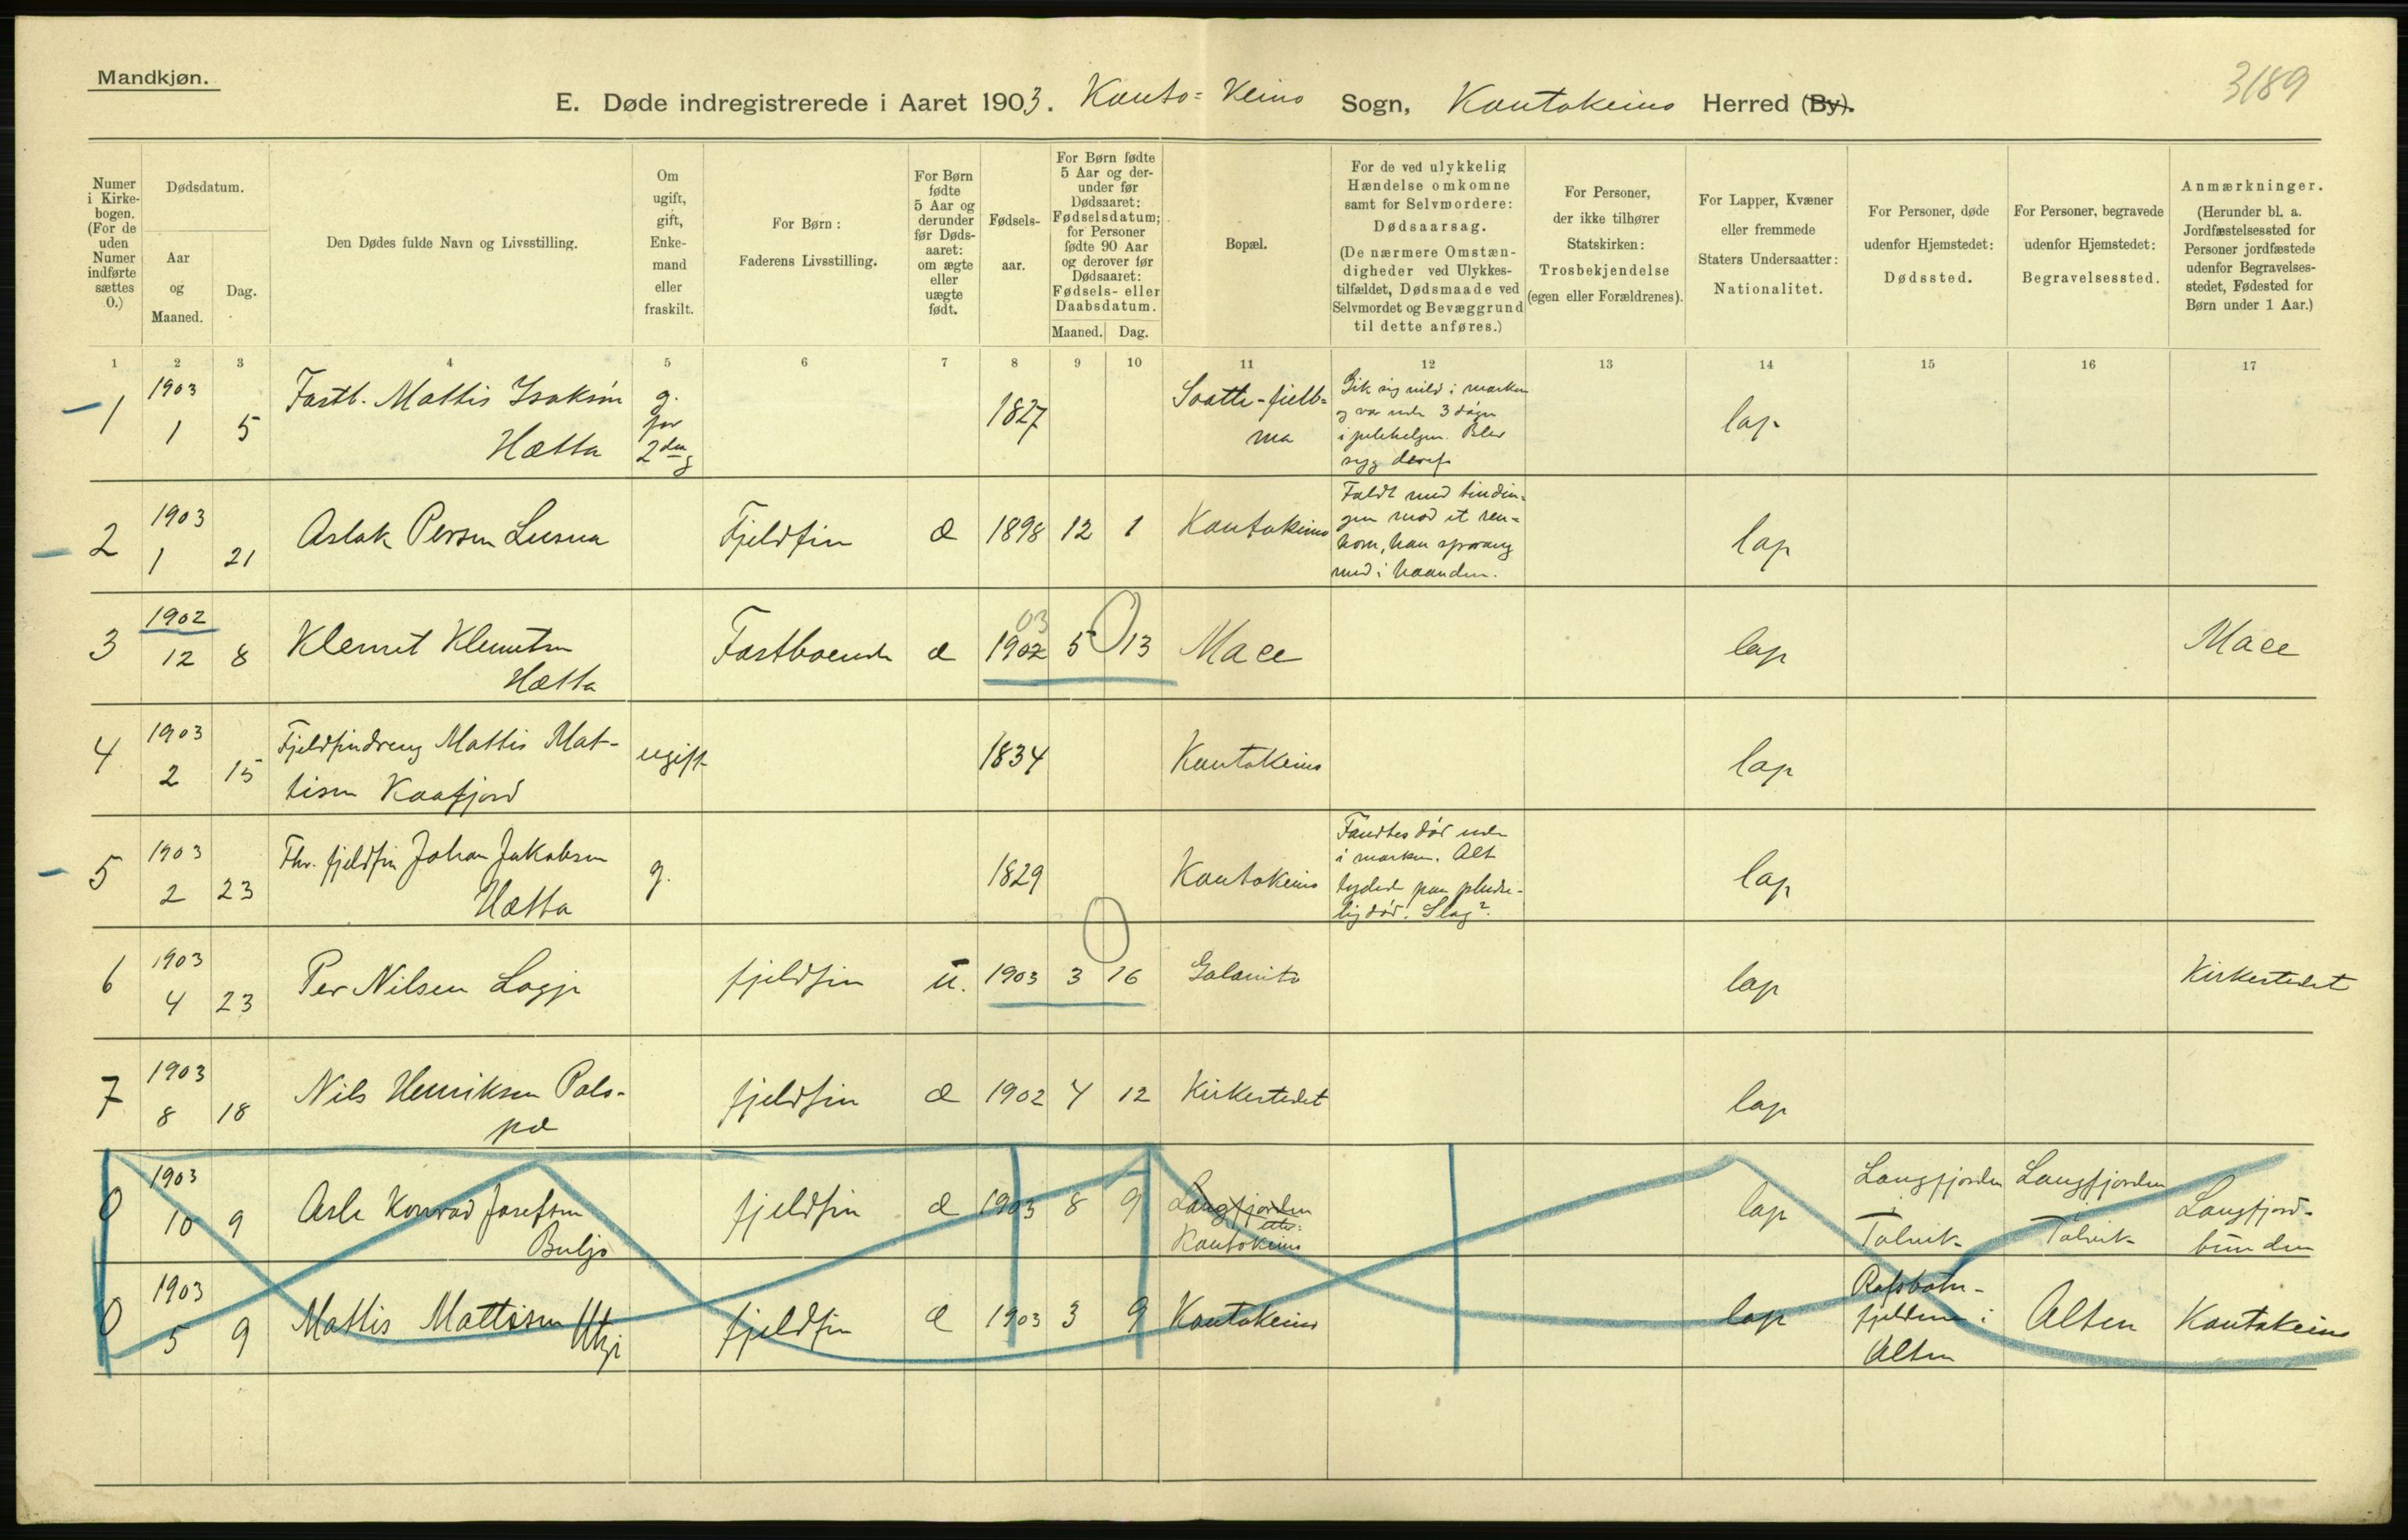 Mandkjøn.
3189
E. Døde indregistrerede i Aaret 1903. Kauto=Keino Sogn, Kautokeino Herred (By).
Numer i Kirkebogen. (For de uden Numer indførte sættes 0.)
Dødsdatum.
Aar og Maaned.
Dag.
Den Dødes fulde Navn og Livsstilling.
Om ugift, gift, Enkemand eller fraskilt.
For Børn: Faderens Livsstilling.
For Børn fødte 5 Aar og derunder før Dødsaaret: om ægte eller uægte født.
Fødselsaar.
For Børn fødte 5 Aar og derunder før Dødsaaret: Fødselsdatum; for Personer fødte 90 Aar og derover før Dødsaaret: Fødsels- eller Daabsdatum.
Maaned. Dag.
Bopæl.
For de ved ulykkelig Hændelse omkomne samt for Selvmordere: Dødsaarsag. (De nærmere Omstændigheder ved Ulykkestilfældet, Dødsmaade ved Selvmordet og Bevæggrund til dette anføres.)
For Personer, der ikke tilhører Statskirken: Trosbekjendelse (egen eller Forældrenes).
For Lapper, Kvæner eller fremmede Staters Undersaatter: Nationalitet.
For Personer, døde udenfor Hjemstedet: Dødssted.
For Personer, begravede udenfor Hjemstedet: Begravelsessted.
Anmærkninger. (Herunder bl. a. Jordfæstelsessted for Personer jordfæstede udenfor Begravelsesstedet, Fødested for Børn under 1 Aar.)
1 2 3 4 5 6 7 8 9 10 11 12 13 14 15 16 17
1 1903 1 5 Fastb. Mattis Isaksen Hætta g. for 2den g 1827 Gik sig vild i marken og var ude 3 døgn i julehelgen. Blev syg deraf lap
2 1903 1 21 Aslak Persen Fjeldfin æ 1898 12 1 Kautokeino Faldt med tindingen mod et renhorn, han sprang med i haanden. lap
3 1902 12 8 Klemet Klemetsen Hætta Fastboende æ 1902 03 5 13 Mace lap Mace
4 1903 2 15 Fjeldfindreng Mattis Mattisen Kaafjord ugift 1834 Kautokeino lap
5 1903 2 23 Fhv. fjeldfin Johan Jakobsen Hætta g. 1829 Kautokeino Fandtes død ude i marken. Alt tydede paa pludselig død. Slag? lap
6 1903 4 23 Per Nilsen Logje fjeldfin u. 1903 3 16 Galanito lap Kirkestedet
7 1903 8 18 Nils Henriksen Palopæ fjeldfin æ 1902 4 12 Kirkestedet lap
0 1903 10 9 Asle Konrad Josefsen Buljo fjeldfin æ 1903 8 9 Langfjorden Kautokeino lap Langfjorden i Talvik Langfjorden i Talvik Langfjordbunden
0 1903 5 9 Mattis Mattisen Utsi fjeldfin æ 1903 3 9 Kautokeino lap Rafsbotnfjeldene i Alten Alten Kautokeino